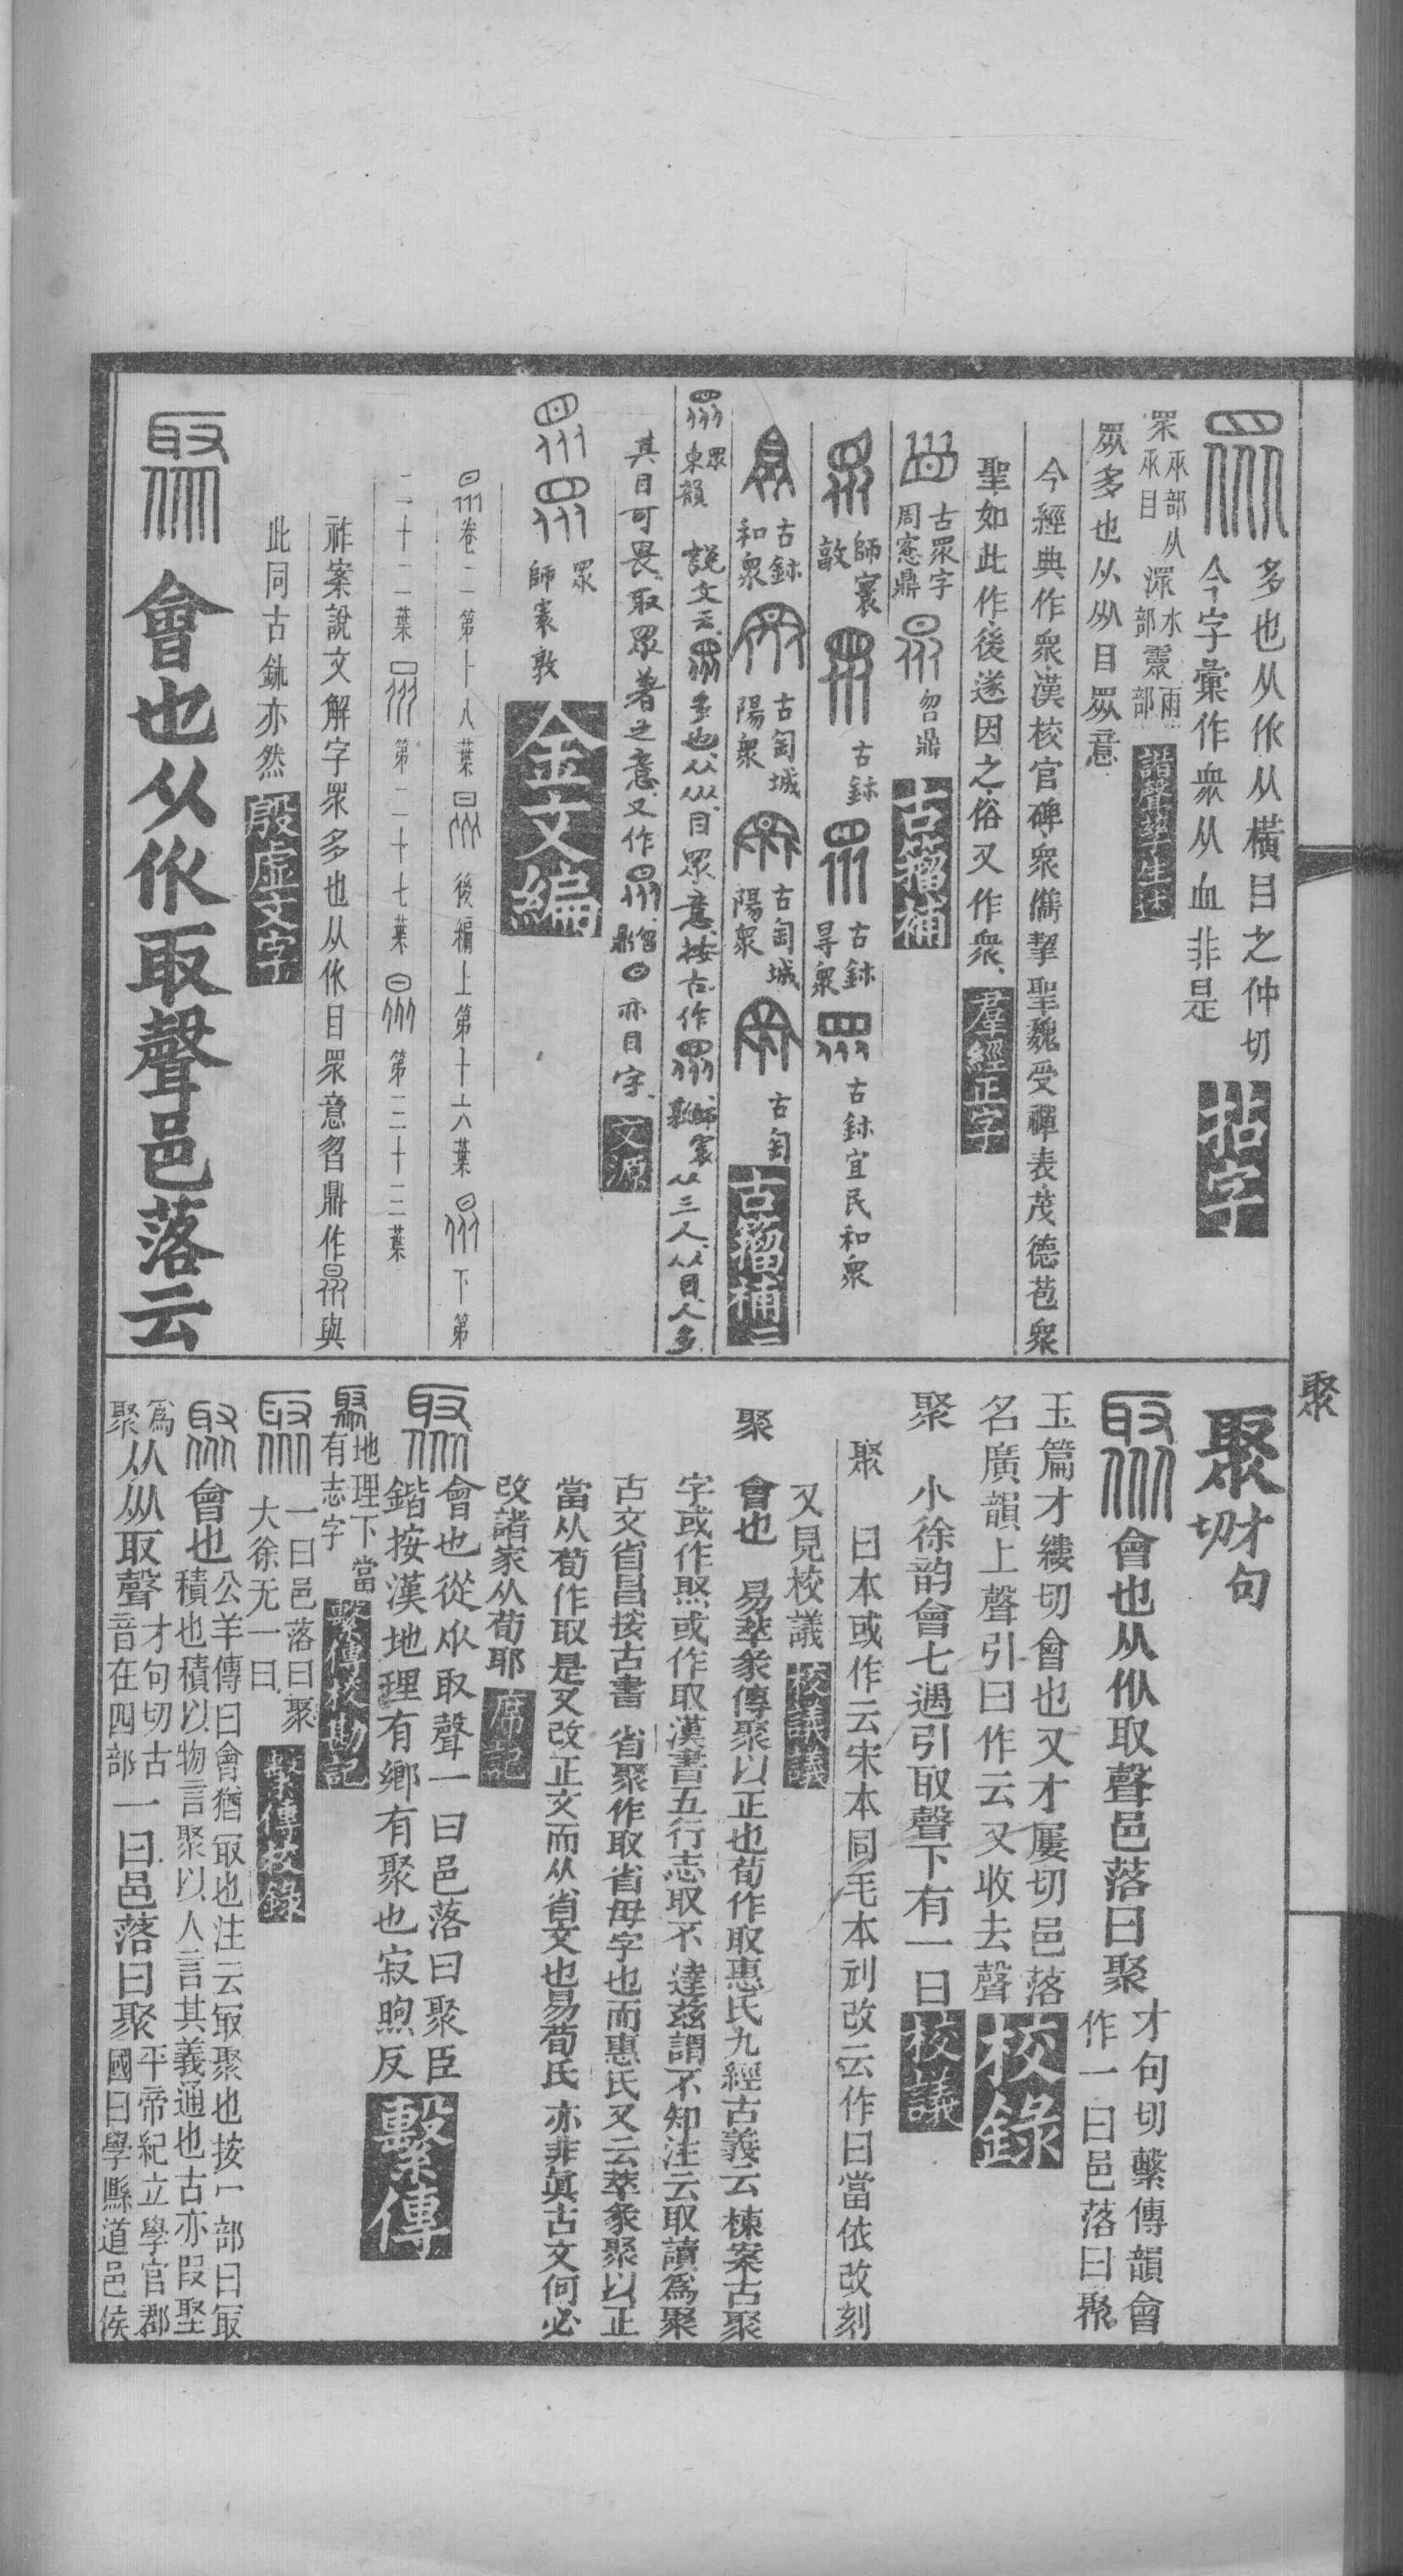 聚
多也从㐺从橫目之仲切
今字彙作衆从血非是
拈字
罙㐺部从深水部靈雨部
㐺目
諧聲孳生述
眾多也从㐺目眾意
今經典作衆漢校官碑衆儁挈聖魏受禪表茂德苞衆
聖如此作後遂因之俗又作衆
羣經正字
古眾字
周窓鼎
曶鼎
古籀補
師寰
敦
古鉥
古鉥
㝵衆
古鉥宜民和衆
古鉥
和衆
古匋城
陽衆
古匋城
陽衆
古匋
古籀補二
眾
東韻
說文云 多也从㐺目眾意按古作 師寰敦从三人从目人多
其目可畏取眾著之意又作 曶鼎 亦目字
文源
眾
師寰敦
金文編
卷二第十八葉 後編上第十六葉 下第
二十二葉 第二十七葉 第三十三葉
祚案說文解字眾多也从㐺目眾意曶鼎作 與
此同古鉥亦然
殷虛文字
會也从㐺取聲邑落云
聚才句切
會也从㐺取聲邑落曰聚才句切繫傳韻會
作一曰邑落曰聚
玉篇才縷切會也又才屢切邑落
名廣韻上聲引曰作云又收去聲
校錄
聚 小徐韵會七遇引取聲下有一曰
校議
聚 曰本或作云宋本同毛本刓改云作曰當依改刻
又見校議
校議議
聚 會也 易萃彖傳聚以正也荀作取惠氏九經古義云棟案古聚
字或作焣或作取漢書五行志取不達茲謂不知注云取讀爲聚
古文省昌按古書 省聚作取省毋字也而惠氏又云萃彖聚以正
當从荀作取是又改正文而从省文也易荀氏亦非眞古文何必
改諸家从荀耶
席記
會也從㐺取聲一曰邑落曰聚臣
鍇按漢地理有鄉有聚也寂煦反
繫傳
地理下當
有志字
繫傳校勘記
一曰邑落曰聚
大徐无一曰
繫傳校錄
會也公羊傳曰會猶冣也注云冣聚也按冖部曰冣
積也積以物言聚以人言其義通也古亦叚堅
爲聚从㐺取聲才句切古音在四部一曰邑落曰聚平帝紀立學官郡
國曰學縣道邑侯